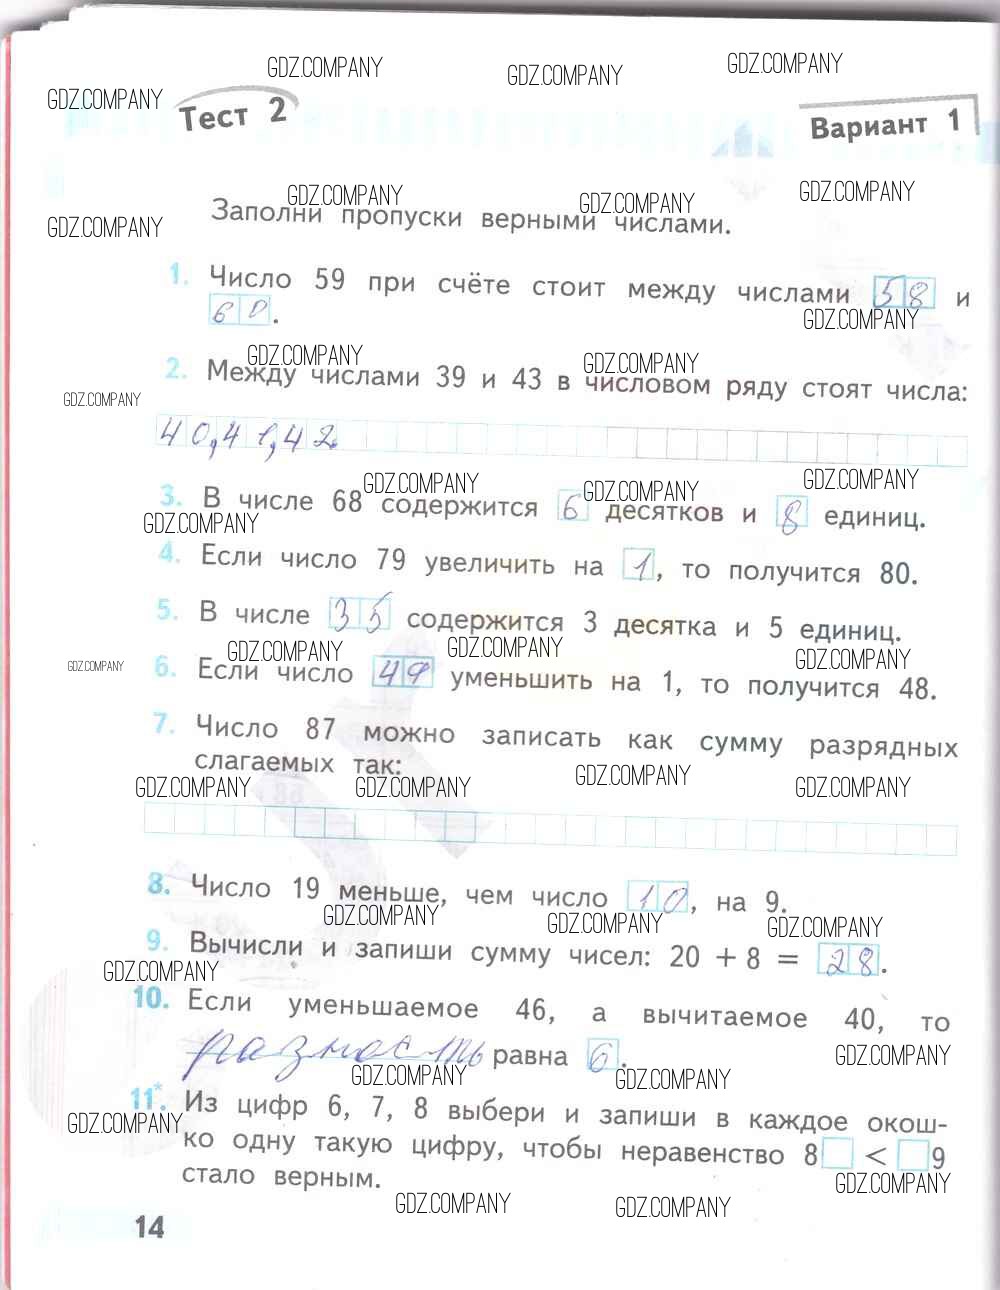 GDZ.COMPANY GDZ.COMPANY GDZ.COMPANY
GDZ.COMPANY
Тест 2 Вариант 1
GDZ.COMPANY GDZ.COMPANY GDZ.COMPANY
GDZ.COMPANY
Заполни пропуски верными числами.
1. Число 59 при счёте стоит между числами 58 и
60.
GDZ.COMPANY
GDZ.COMPANY GDZ.COMPANY
2. Между числами 39 и 43 в числовом ряду стоят числа:
GDZ.COMPANY
40,41,42.
GDZ.COMPANY GDZ.COMPANY GDZ.COMPANY
3. В числе 68 содержится 6 десятков и 8 единиц.
GDZ.COMPANY
4. Если число 79 увеличить на 1, то получится 80.
5. В числе 35 содержится 3 десятка и 5 единиц.
GDZ.COMPANY GDZ.COMPANY GDZ.COMPANY
GDZ.COMPANY
6. Если число 49 уменьшить на 1, то получится 48.
7. Число 87 можно записать как сумму разрядных
слагаемых так:
GDZ.COMPANY GDZ.COMPANY GDZ.COMPANY GDZ.COMPANY
8. Число 19 меньше, чем число 10, на 9.
GDZ.COMPANY GDZ.COMPANY GDZ.COMPANY
9. Вычисли и запиши сумму чисел: 20 + 8 = 28.
GDZ.COMPANY
10. Если уменьшаемое 46, а вычитаемое 40, то
разность равна 6.
GDZ.COMPANY GDZ.COMPANY GDZ.COMPANY
11*. Из цифр 6, 7, 8 выбери и запиши в каждое окош-
GDZ.COMPANY
ко одну такую цифру, чтобы неравенство 8 < 9
стало верным.
GDZ.COMPANY
GDZ.COMPANY GDZ.COMPANY
14